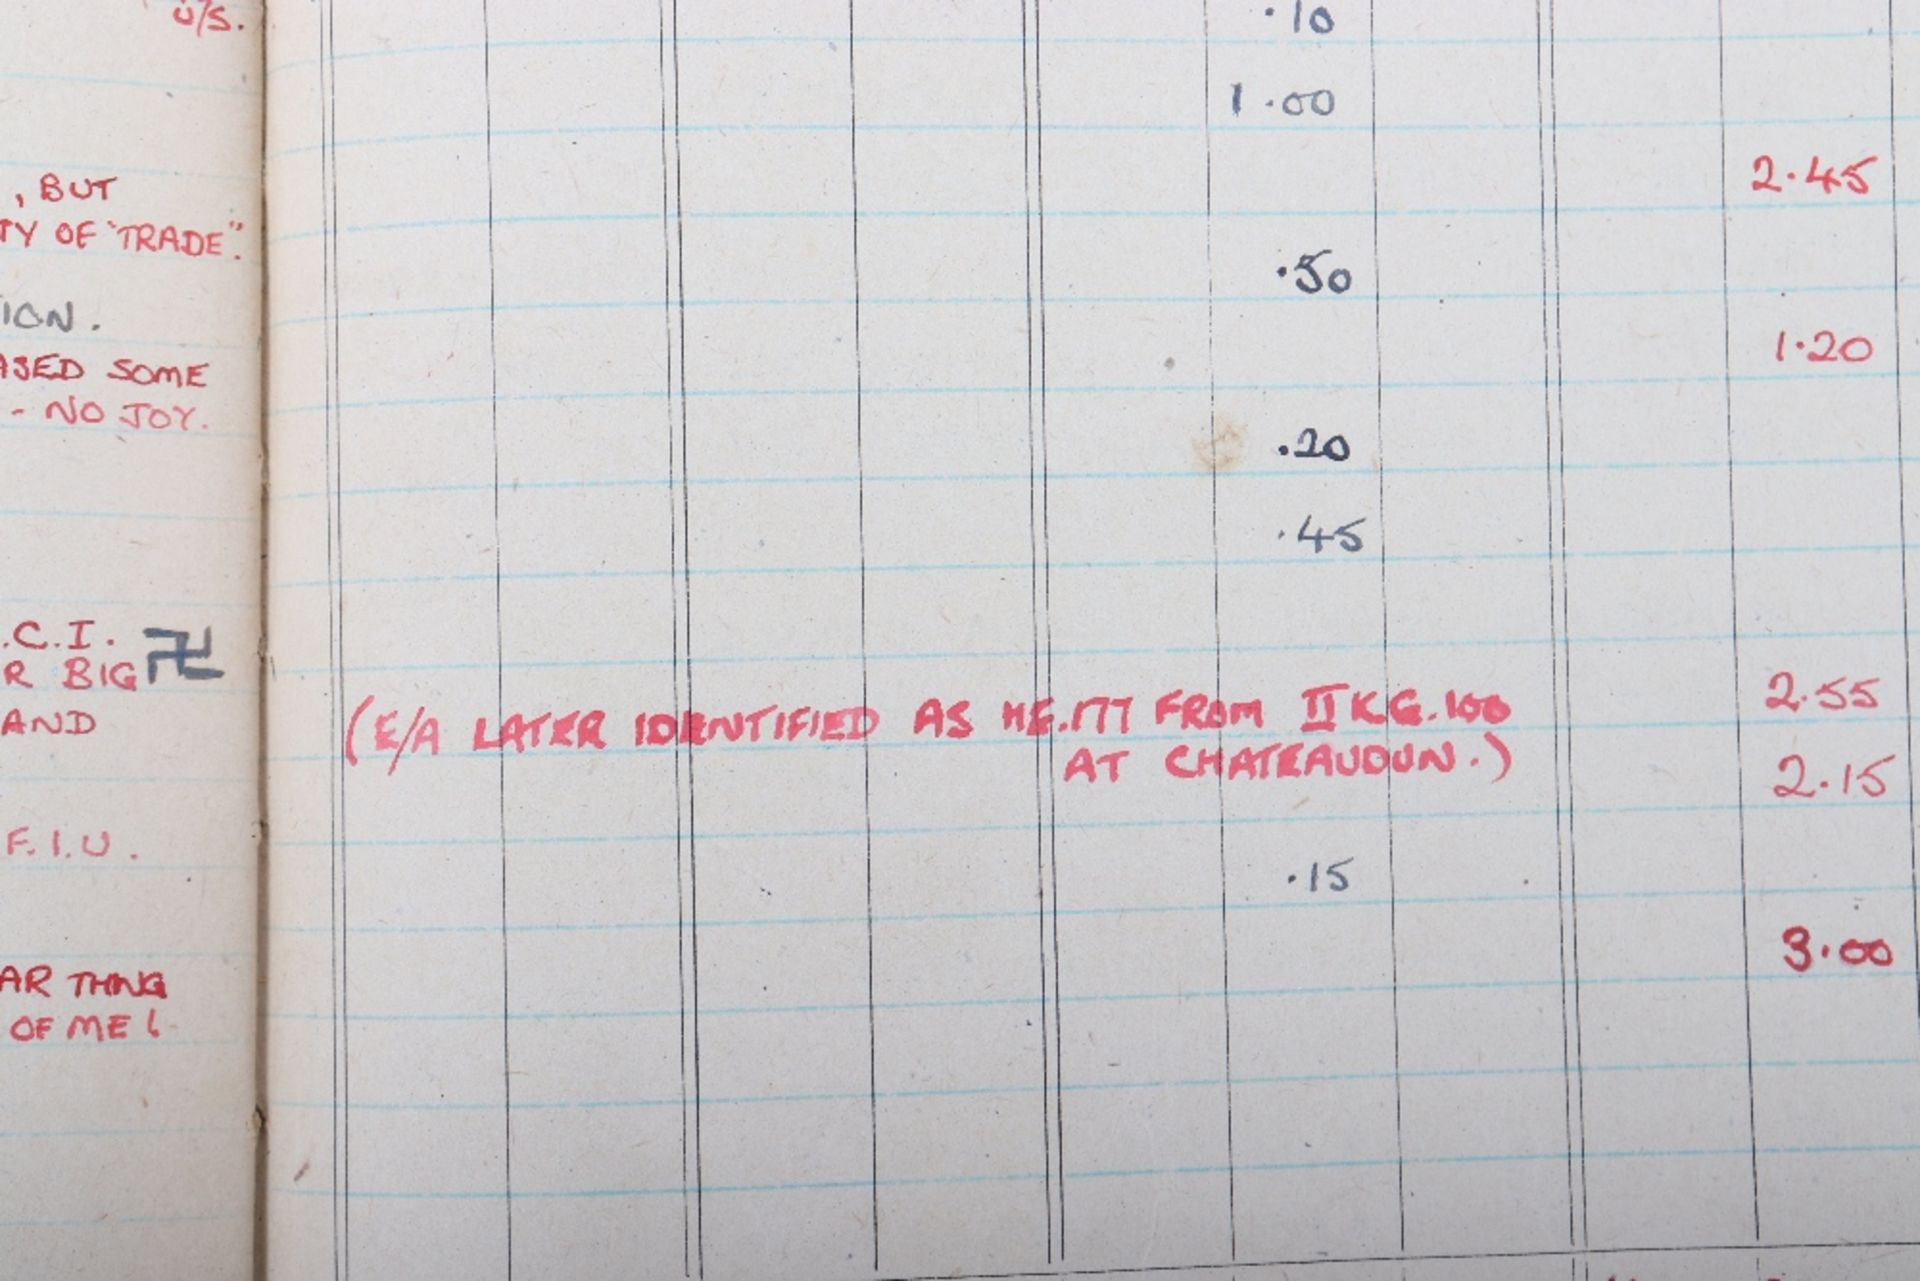 U/S.
.10
1.00
, BUT
2.45
TY OF "TRADE".
.50
ION.
1.20
ASED SOME
- NO JOY.
.20
.45
.C.I.
R BIG 卍
AND
(E/A LATER IDENTIFIED AS HE.177 FROM II KG.100
2.55
AT CHATEAUDUN.)
2.15
F.I.U.
.15
3.00
AR THING
OF ME!